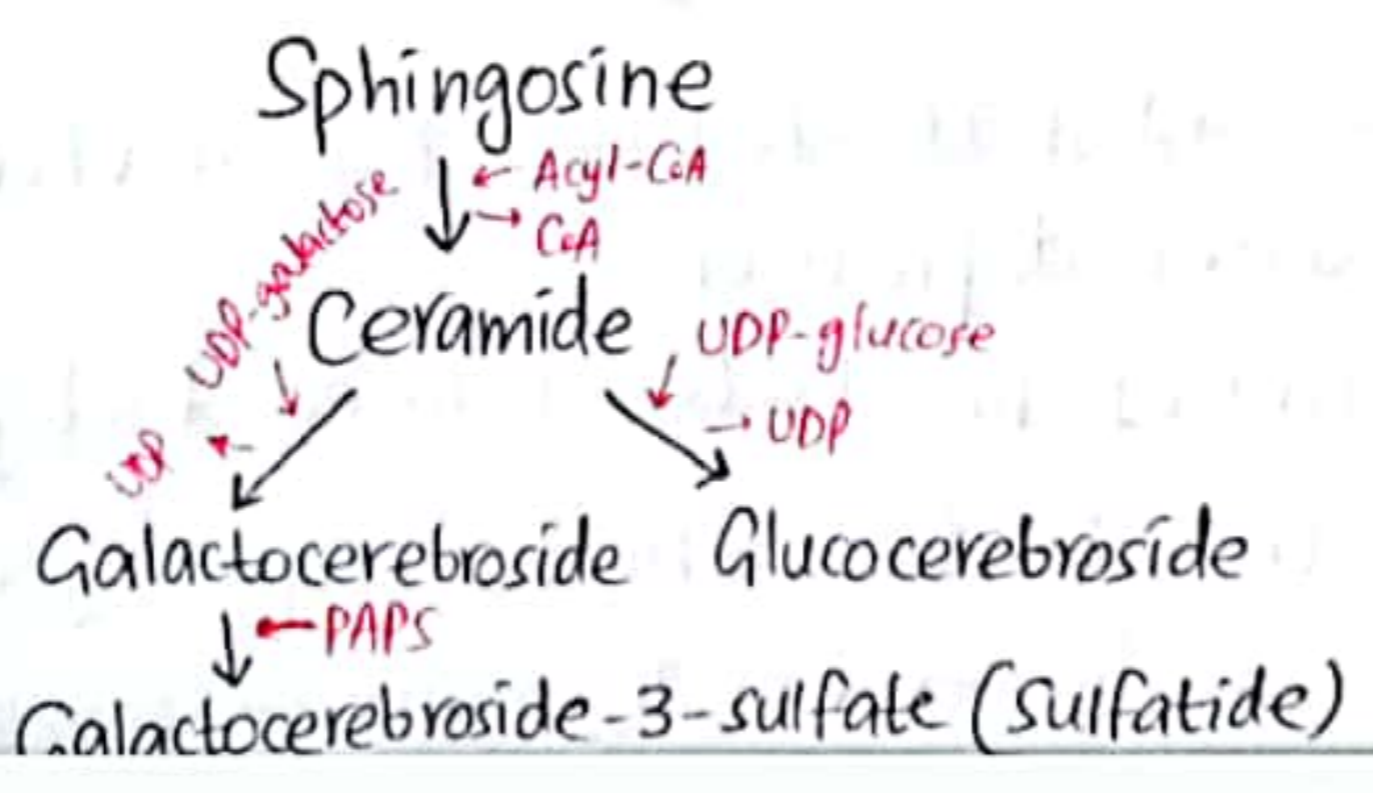 Sphingosine
← Acyl-CoA
→ CoA
UDP-galactose
Ceramide
UDP-glucose
→ UDP
UDP
Galactocerebroside Glucocerebroside
PAPS
Galactocerebroside-3-sulfate (Sulfatide)